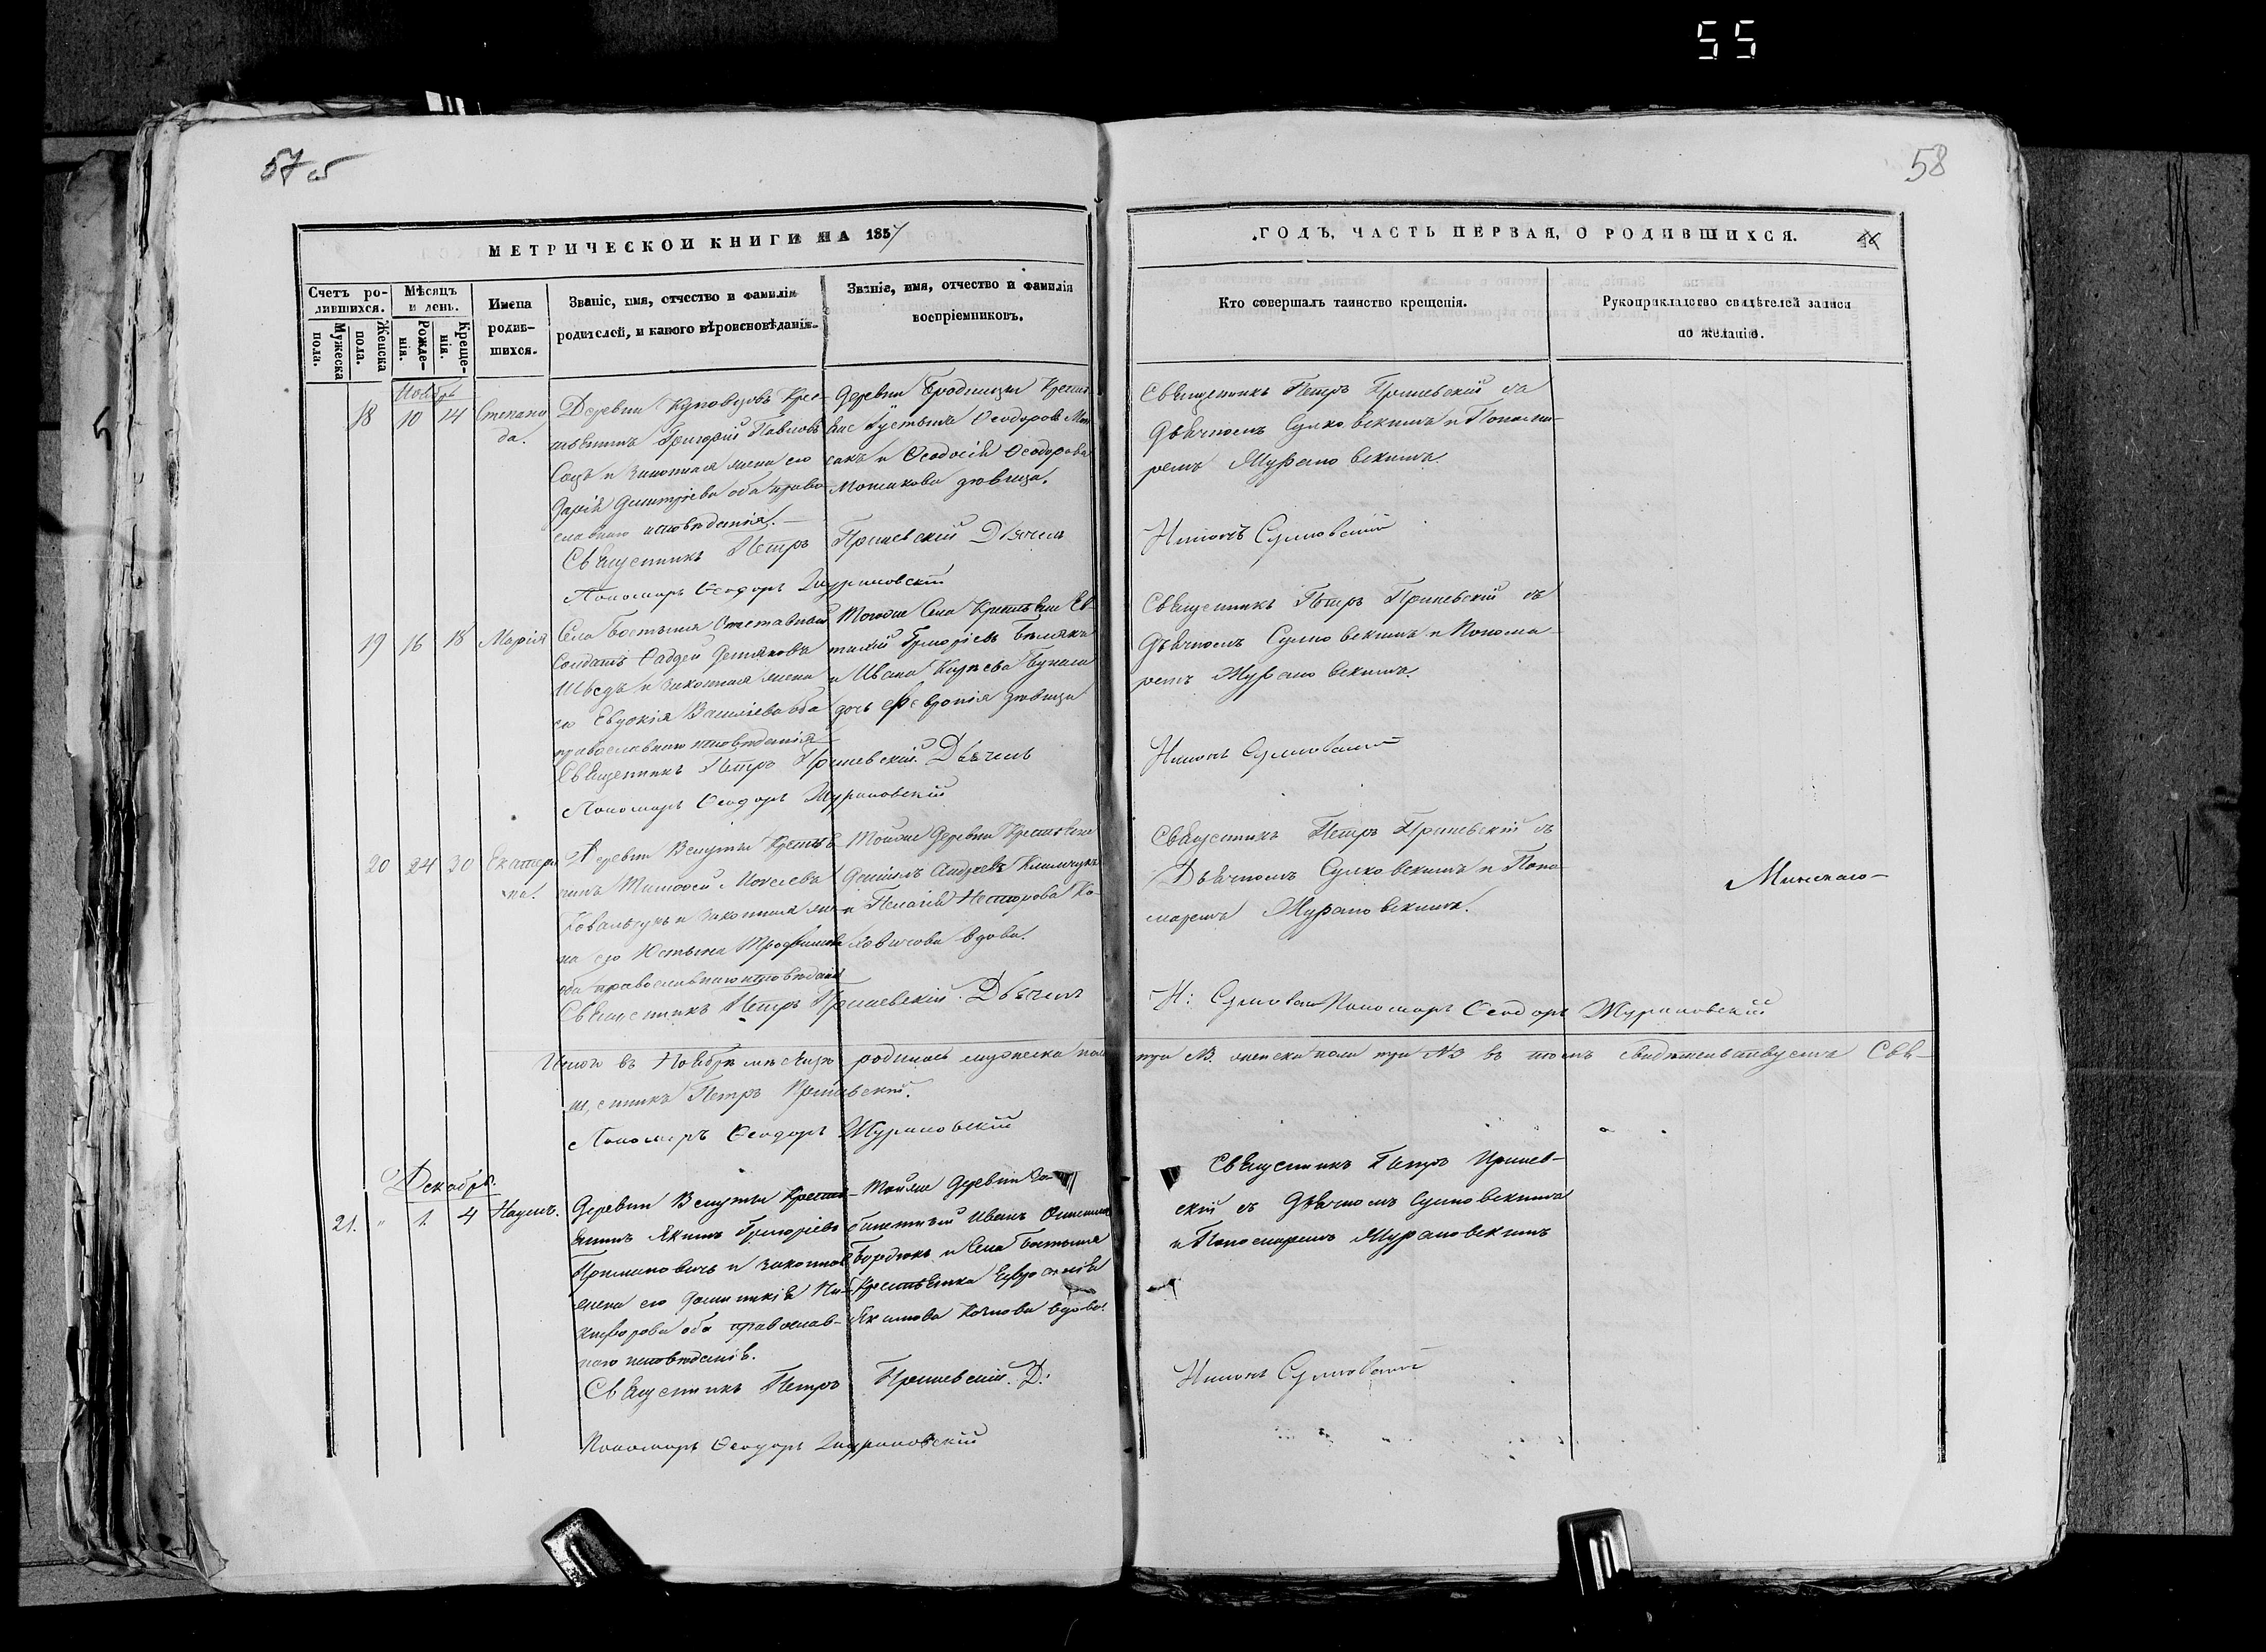 55
57 об
58
МЕТРИЧЕСКОИ КНИГИ НА 1857
ГОДЪ, ЧАСТЬ ПЕРВАЯ, О РОДИВШИХСЯ.
Счетъ ро-
дившихся.
Мужеска
пола.
Женска
пола.
Мѣсяцъ
и день.
Рожде-
нія.
Креще-
нія.
Имена
родив-
шихся.
Званіе, имя, отчество и фамилія
родителей, и какого вѣроисповѣданія.
Званіе, имя, отчество и фамилія
воспріемниковъ.
Кто совершалъ таинство крещенія.
Рукоприкладство свидѣтелей записи
по желанію.
Ноябрь
18 10 14
Степани
да.
Деревни Крес-
тьянинъ Григорій Павловъ
и законная жена его
Дарія Димитріева оба право-
славнаго исповѣданія.
Священникъ Петръ
Пономарь Ѳеодоръ Журановскій
Деревни Бродницы Крестья-
Ѳеодоровъ Мои-
сакъ и Ѳеодосія Ѳеодорова
дѣвица.
Пришевскій Дьячекъ
Священникъ Петръ Пришевскій съ
Дьячкомъ Сулковскимъ и Понома-
ремъ Журановскимъ.
Никонъ Сулковскій
19 16 18 Марія
Села Бостыня Отставный
Солдатъ Фаддей Демяновъ
Шведъ и законная жена
его Евдокія Василіева оба
православнаго исповѣданія
Священникъ Петръ Пришевскій. Дьячекъ
Пономарь Ѳеодоръ Журановскій
Тогоже Села Крестьяне Ев-
Григоріевъ
и Ивана Карпова
дочь Февронія дѣвица
Священникъ Петръ Пришевскій съ
Дьячкомъ Сулковскимъ и Понома-
ремъ Журановскимъ.
Никонъ Сулковскій
20 24 30
Екатери
на.
Деревни Велуты Крестья-
нинъ Тимоѳей Моисеевъ
Ковальчукъ и законная же-
на его Устинія
оба православнаго исповѣданія
Священникъ Петръ Пришевскій. Дьячекъ
Тойже Деревни Крестьяне
Даниилъ Андреевъ Климчукъ
и Пелагія Несторова Ко-
вдова.
Священникъ Петръ Пришевскій съ
Дьячкомъ Сулковскимъ и Поно-
маремъ Журановскимъ.
Минскаго
Н: Сулковскій Пономарь Ѳеодоръ Журановскій
Итого въ Ноябрѣ мѣсяцѣ родилось мужеска пола три №3. женска пола три №3 въ томъ свидѣтельствуемъ Свя-
щенникъ Петръ Пришевскій.
Пономарь Ѳеодоръ Журановскій
Декабрь.
21. " 1 4 Наумъ.
Деревни Велуты Крестья-
нинъ Якимъ Григоріевъ
и законная
жена его Домникія Ни-
кифорова оба православ-
наго исповѣданія.
Священникъ Петръ Пришевскій. Д:
Пономарь Ѳеодоръ Журановскій
Тойже Деревни
Иванъ
Бордюкъ и Села Бостыня
Крестьянка Евфросинія
Якимова вдова.
Священникъ Петръ Пришев-
скій съ Дьячкомъ Сулковскимъ
и Пономаремъ Журановскимъ
Никонъ Сулковскій